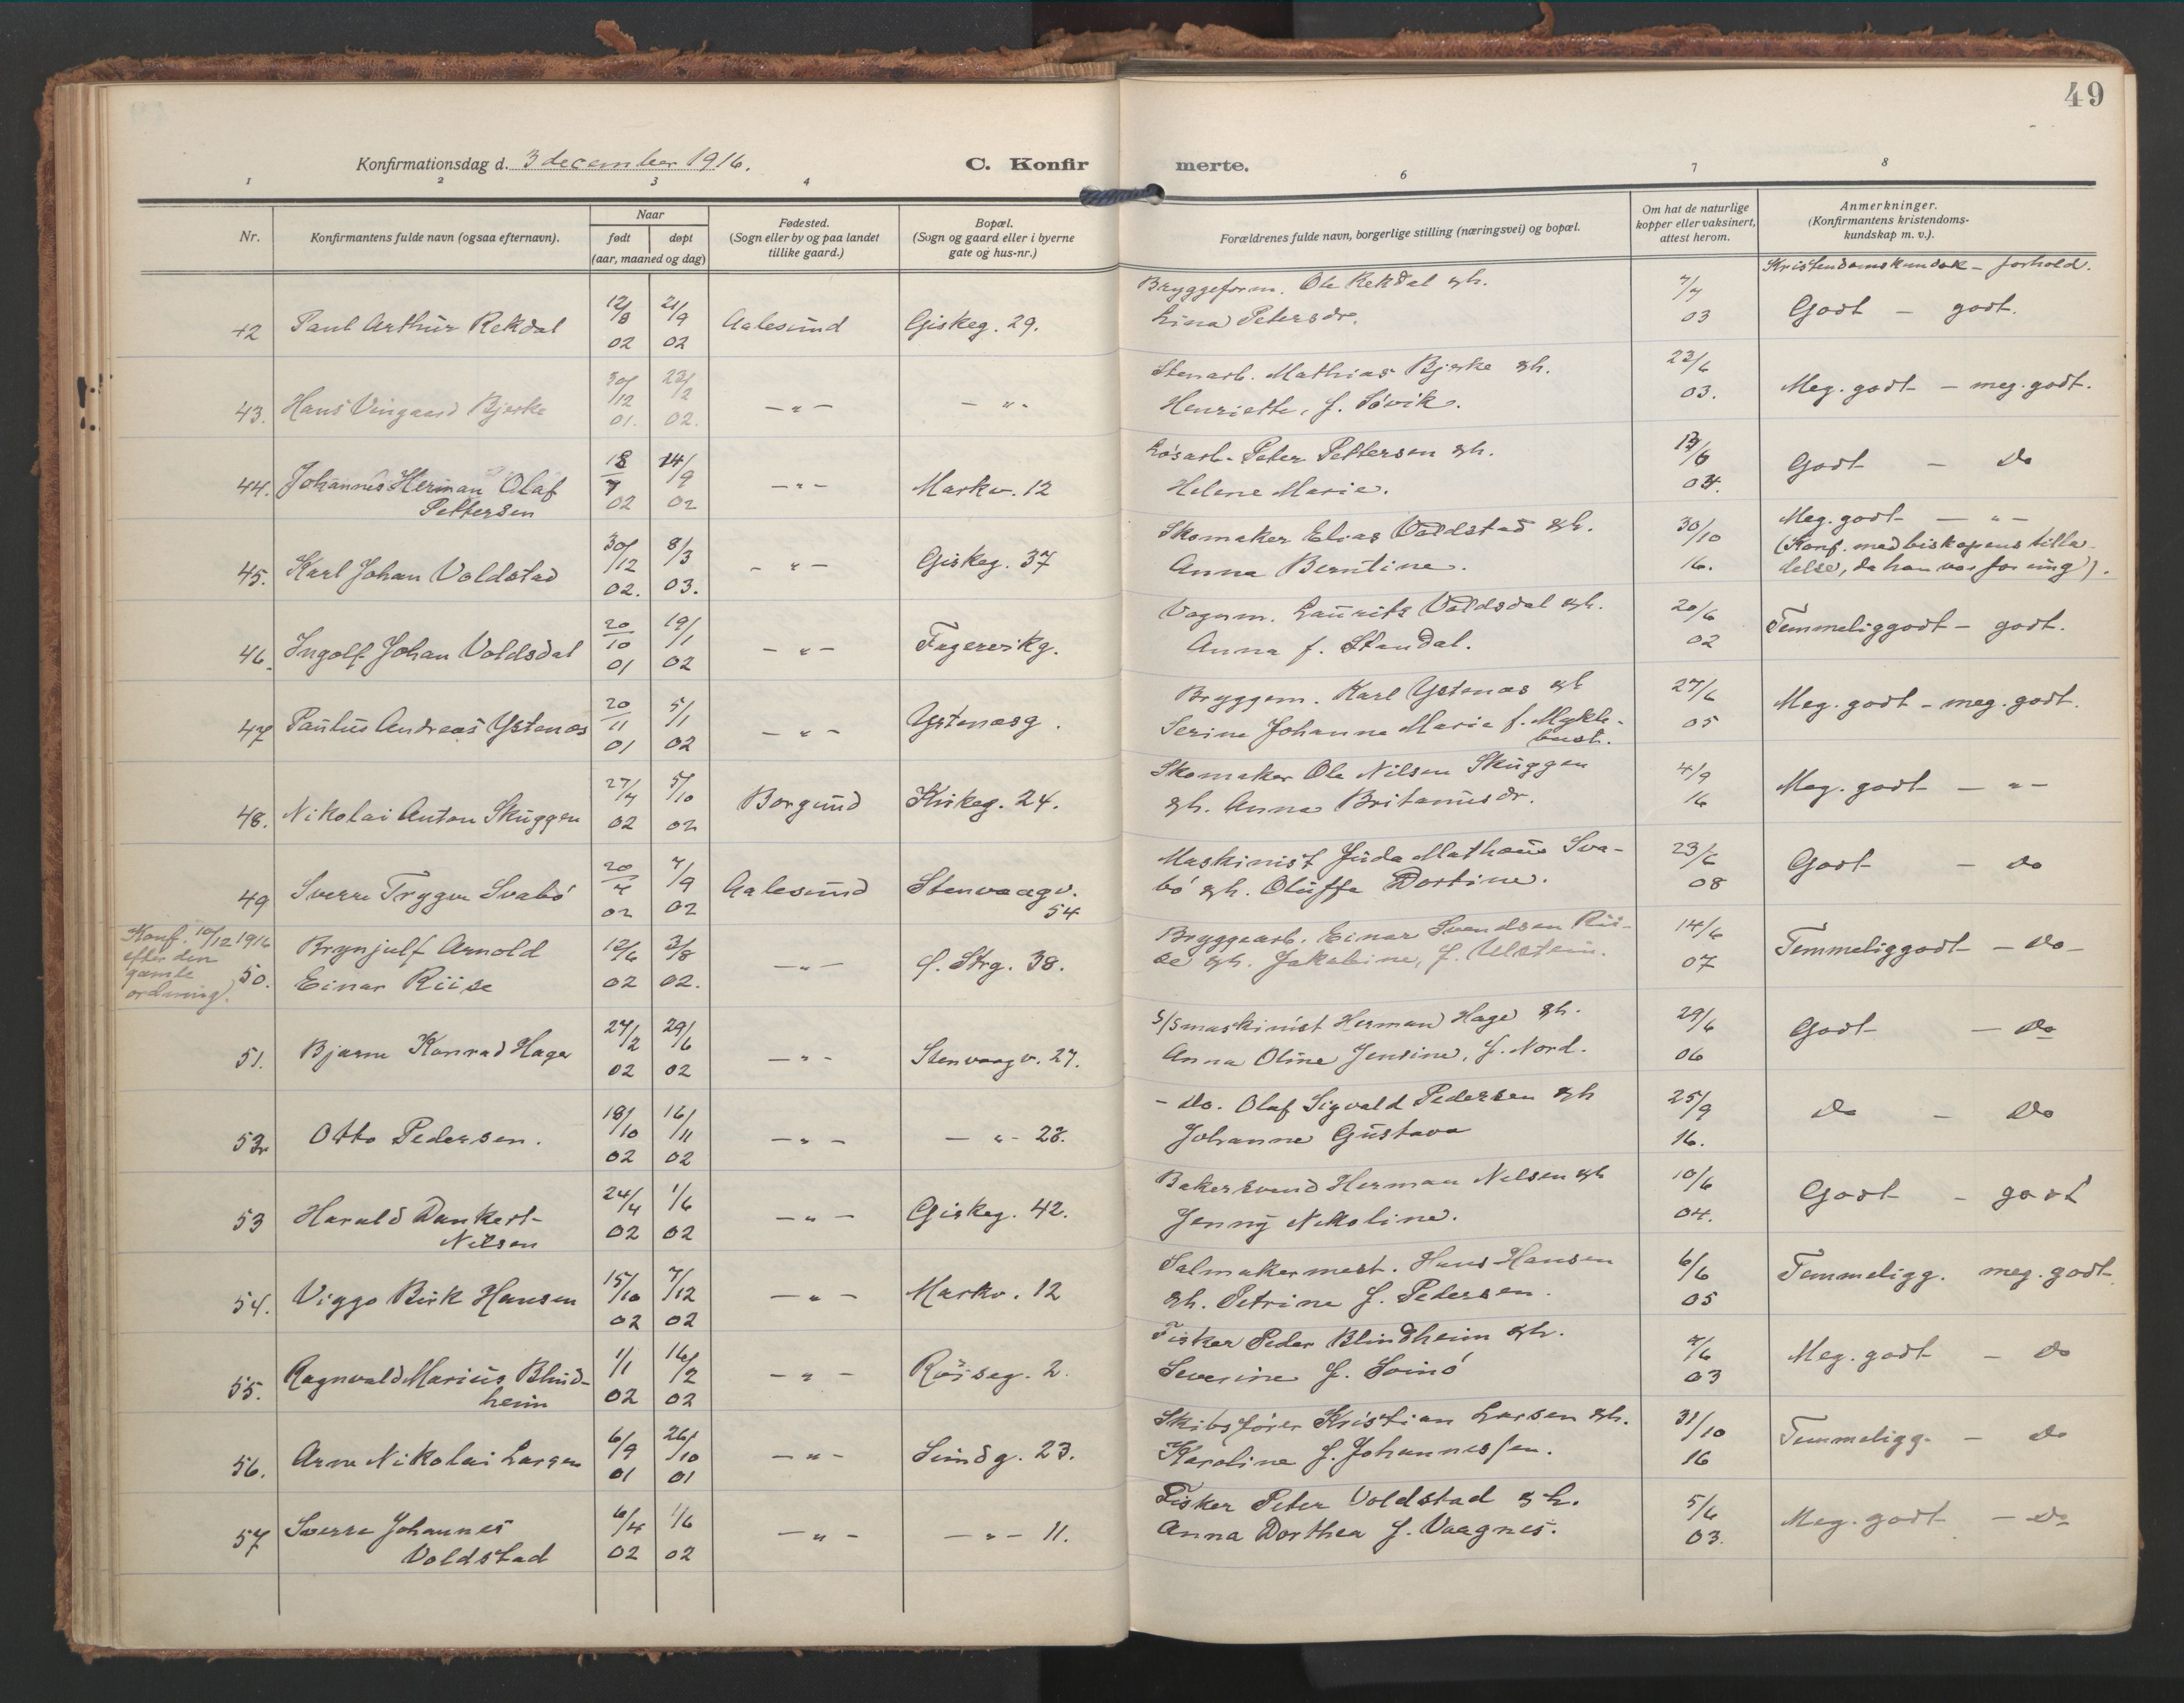 49
Konfirmationsdag d. 3 december 1916.
C. Konfirmerte.
1 2 3 4 6 7 8
Nr.
Konfirmantens fulde navn (ogsaa efternavn).
Naar
født døpt
(aar, maaned og dag)
Fødested.
(Sogn eller by og paa landet
tillike gaard.)
Bopæl.
(Sogn og gaard eller i byerne
gate og hus-nr.)
Forældrenes fulde navn, borgerlige stilling (næringsvei) og bopæl.
Om hat de naturlige
kopper eller vaksinert,
attest herom.
Anmerkninger.
(Konfirmantens kristendoms-
kundskap m. v.).
Kristendomskundsk - forhold.
42 Paul Arthur Rekdal 12/8 02 21/9 02 Aalesund Giskeg. 29.
Bryggeform. Ole Rekdal gh.
Lina Petersdr. 7/7 03 Godt - godt.
43. Hans Vingaard Bjerke 30/12 01. 23/2 02. -"- -"-
Stenarb. Mathias Bjerke gh.
Henriette, f. Søvik. 23/6 03. Meg. godt - meg. godt.
44. Johannes Herman Olaf
Pettersen 18/7 02 14/9 02 -"- Markv. 12
Løsarb. Peter Pettersen gh.
Helene Marie. Godt - Do
45. Karl Johan Voldstad 30/12 02. 8/3 03. -"- Giskeg. 37
Skomaker Elias Voldstad gh.
Anna Berntine. 30/10 16. Meg. godt - " -
(Konf. med biskopens tilla-
delse, da han var for ung).
46. Ingolf Johan Voldsdal 20/10 01 19/1 02 -"- Fagervikg.
Vognm. Laurits Voldsdal gh.
Anna f. Standal. 20/6 02 Temmeliggodt - godt.
47 Paulus Andreas Ystenæs 20/11 01 5/1 02 -"- Ystenæsg.
Bryggem. Karl Ystenæs gh
Serine Johanne Marie f. Mykle-
bust. 27/6 05 Meg. godt - meg. godt.
48. Nikolai Anton Skuggen 27/7 02 5/10 02 Borgund Kirkeg. 24.
Skomaker Ole Nilsen Skuggen
gh. Anna Britanusdr. 4/9 16 Meg. godt - " -
49 Sverre Trygve Svabø 20/7 02 7/9 02 Aalesund Stenvaagv.
54
Maskinist Juda Mathæus Sva-
bø gh. Oluffa Dortine. 23/6 08 Godt - Do
Konf. 10/12 1916
efter den
gamle
ordning).
50. Brynjulf Arnold
Einar Riise 12/6 02 3/8 02. -"- Ø. Strg. 38.
Bryggearb. Einar Svendsen Rii-
se gh. Jakobine, f. Ulstein. 14/6 07 Temmeliggodt - Do -
51. Bjarne Konrad Hage 27/2 02 29/6 02 -"- Stenvaagv. 27.
S/Smaskinist Herman Hage gh.
Anna Oline Jensine, f. Nord. 29/6 06 Godt - Do
52 Otto Pedersen. 18/10 02 16/11 02 -"- -"- 28.
- Do. Olaf Sigvald Pedersen gh
Johanne Gustava 25/9 16. Do - Do
53 Harald Dankert-
Nilsen 24/4 02 1/6 02 -"- Giskeg. 42.
Bakersvend Herman Nilsen gh
Jenny Nikoline. 10/6 04. Godt - godt
54. Viggo Birk Hansen 15/10 02 7/12 02 -"- Markv. 12
Salmakermest. Hans Hansen
gh. Petrine f. Pedersen. 6/6 05 Temmeligg. meg. godt
55. Ragnvald Marius Blind-
heim 1/1 02 16/2 02 -"- Røiseg. 2.
Fisker Peder Blindheim gh.
Severine f. Svinø 7/6 03 Meg. godt - Do
56. Arne Nikolai Larsen 6/9 01 26/10 01 -"- Sundg. 23.
Skibsfører Kristian Larsen gh.
Karoline f. Johannessen. 31/10 16 Temmeligg. - Do
57 Sverre Johannes
Voldstad 6/4 02 1/6 02 -"- -"- 11.
Fisker Peter Voldstad gh.
Anna Dorthea f. Vaagnes. 5/6 03. Meg. godt - Do